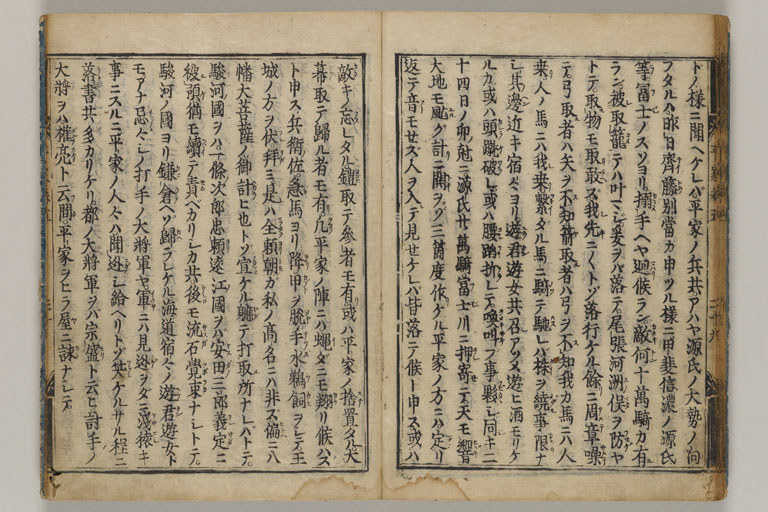 ドノ様ニ聞ヘケレバ平家ノ兵共アハヤ源氏ノ大勢ノ向
フタルハ昨日齊藤別當カ申ツル様ニ甲斐信濃ノ源氏
等冨士ノスソヨリ搦手ヘヤ廻候ラン敵何十萬騎カ有
ラン被取籠テハ叶マジ爰ヲバ落テ尾張河洲俣ヲ防ヤ
トテ取物モ取敢ズ我先ニ〱トゾ落行ケル餘ニ周章噪
テ弓取者ハ矢ヲ不知箭取者ハ弓ヲ不知我カ馬ニハ人
乗人ノ馬ニハ我乗繋タル馬ニ騎テ馳レバ株ヲ繞事限ナ
シ其邊近キ宿々ヨリ遊君遊女共召アツメ遊ヒ酒モリケ
ル九或ハ頭蹴破レ或ハ腰蹈折レテ喚叫フ事夥シ同キ二
十四日ノ卯尅ニ源氏廿萬騎冨士川ニ押寄テ天モ響
大地モ動ク計ニ鬨ヲゾ三箇度作ケル平家ノ方ニハ定リ
返テ音モセズ人ヲ入テ見セケレバ皆落テ候ト申ス或ハ
敵キノ忘レタル鎧取テ参者モ有或ハ平家ノ捨置タル大
幕取テ歸ル者モ有凡平家ノ陣ニハ蠅ダニモ翔リ候ハズ
ト申ス兵衛佐急馬ヨリ降甲ヲ脱手水鵜飼ヲシテ王
城ノ方ヲ伏拜ミ是ハ全頼朝カ私ノ高名ニハ非ズ偏ニ八
幡大菩薩ノ御計ヒ也トソ宣ケル軈テ打取所ナレバトテ
駿河國ヲハ一條次郎忠頼遠江國ヲハ安田三郎義定ニ
彼預猶モ續テ責ベカリシカ共後モ流石覺束ナシトテ
駿河ノ國ヨリ鎌倉ヘソ歸ラレケル海道宿々ノ遊君遊女ト
モアナ忌々シノ打手ノ大將軍ヤ軍ニハ見迯ヲダニ淺猿キ
事ニスルニ平家ノ人々ハ聞迯シ給ヘリトゾ笑ケルサル程ニ
落書共多カリケリ都ノ大將軍ヲバ宗盛ト云ヒ討手ノ
大將ヲハ權亮ト云間平家ヲヒラ屋ニ詠ナシテ